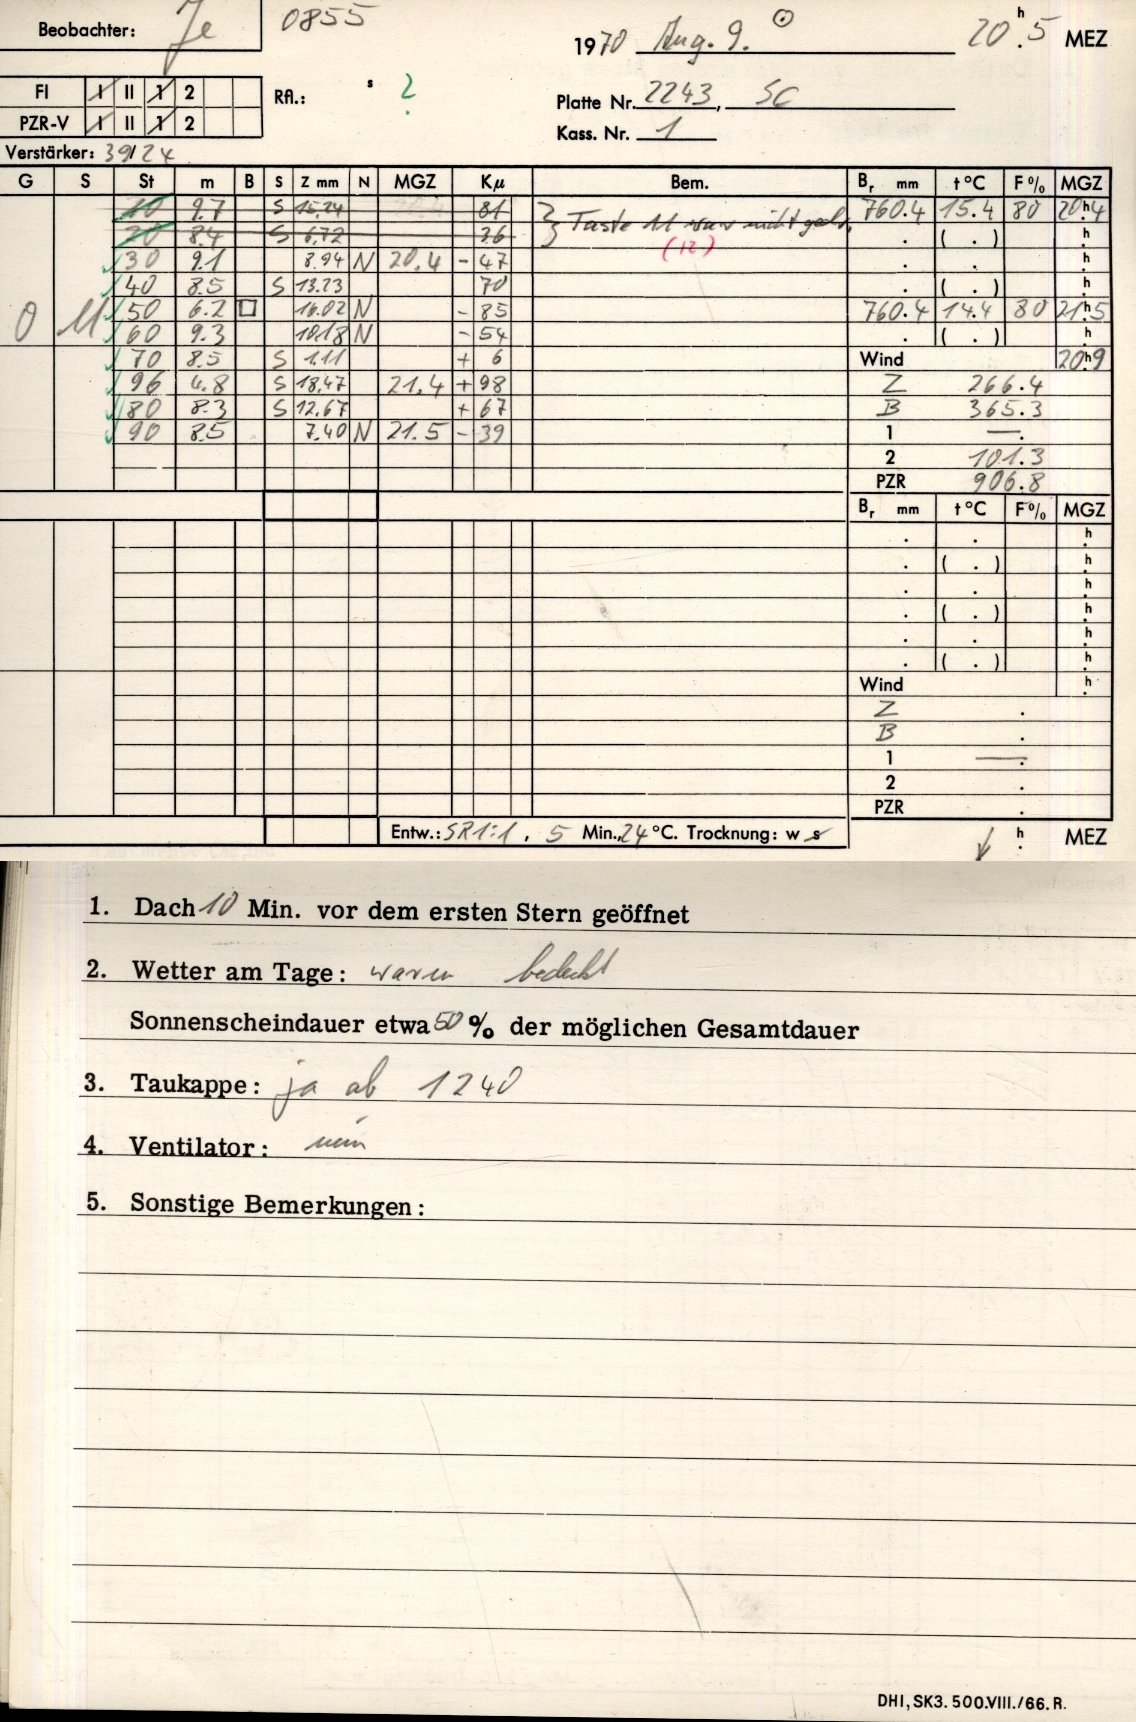 Beobachter: Je 0855 1970 Aug. 9. ⊙ 20 h . 5 MEZ
FI I II 1 2 Rfl.: s ? Platte Nr. 2243, SC
PZR-V I II 1 2 Kass. Nr. 1
Verstärker: 39/24
G S St m B S Z mm N MGZ Kμ Bem. Br mm t °C F % MGZ
10 9.7 S 15.24 20.4 81 } Taste 11 war nicht gedr. 760.4 15.4 80 20 h 4
20 8.4 S 6.72 36 (12) . ( . ) h
30 9.1 8.94 N 20.4 - 47 . . h
40 8.5 S 13.23 70 . ( . ) h
0 11 50 6.2 □ 16.02 N - 85 760.4 14.4 80 21 h 5
60 9.3 10.18 N - 54 . ( . ) h
70 8.5 S 1.11 + 6 Wind 20 h 9
96 4.8 S 18.47 21.4 + 98 Z 266.4
80 8.3 S 12.67 + 67 B 365.3
90 8.5 7.40 N 21.5 - 39 1 — .
— 2 101.3
PZR 906.8
Br mm t °C F % MGZ
. . h
. ( . ) h
. . h
. ( . ) h
. . h
. ( . ) h
Wind h
Z .
B .
1 — .
2 .
PZR .
Entw.: SR 1:1 , 5 Min., 24 °C. Trocknung: w s ↓ h . MEZ
1. Dach 10 Min. vor dem ersten Stern geöffnet
2. Wetter am Tage: warm bedeckt
Sonnenscheindauer etwa 50 % der möglichen Gesamtdauer
3. Taukappe: ja ab 1240
4. Ventilator: nein
5. Sonstige Bemerkungen:
DHI, SK3. 500.VIII./66. R.